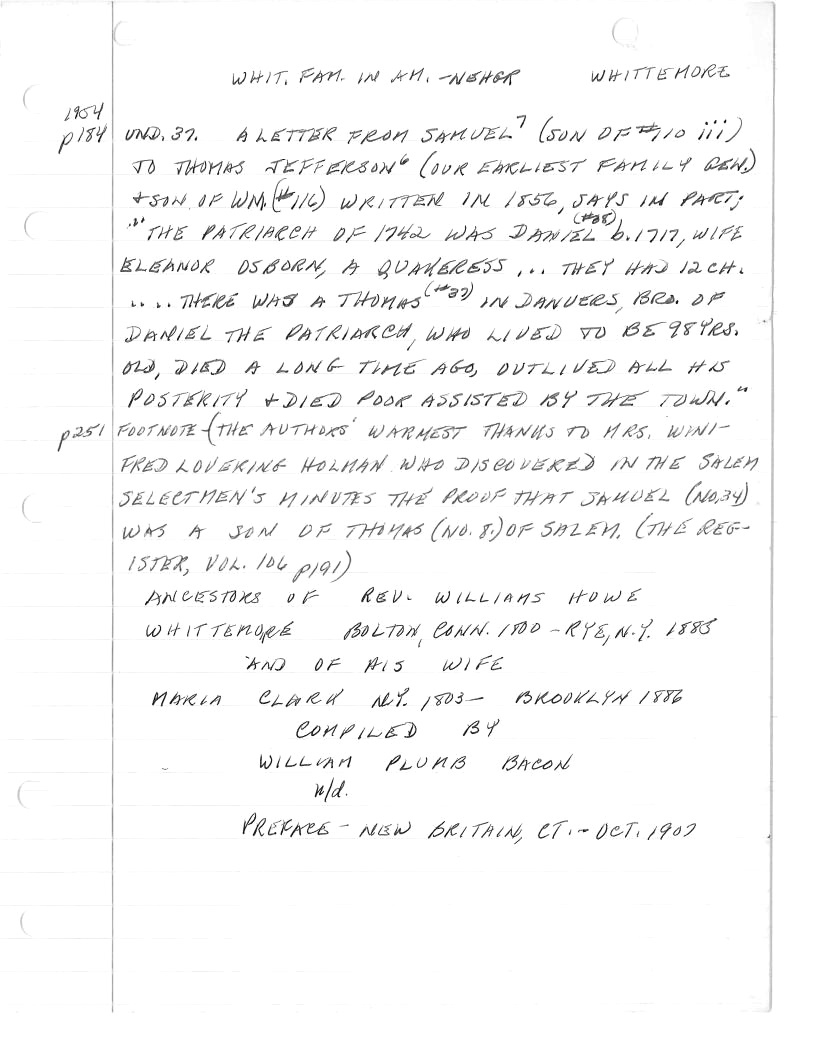 WHIT. FAM. IN AM. - NEHGR WHITTEMORE
1954
p184 UND. 37. A LETTER FROM SAMUEL⁷ (SON OF #110 iii)
TO THOMAS JEFFERSON⁶ (OUR EARLIEST FAMILY GEN.)
+ SON OF WM. (#116) WRITTEN IN 1856, SAYS IN PART;
"THE PATRIARCH OF 1742 WAS DANIEL (#38) b. 1717, WIFE
ELEANOR OSBORN, A QUAKERESS ... THEY HAD 12 CH.
.... THERE WAS A THOMAS (#37) IN DANVERS, BRO. OF
DANIEL THE PATRIARCH, WHO LIVED TO BE 98 YRS.
OLD, DIED A LONG TIME AGO, OUTLIVED ALL HIS
POSTERITY + DIED POOR ASSISTED BY THE TOWN."
p251 FOOTNOTE - (THE AUTHORS' WARMEST THANKS TO MRS. WINI-
FRED LOVERING HOLMAN WHO DISCOVERED IN THE SALEM
SELECTMEN'S MINUTES THE PROOF THAT SAMUEL (NO. 34)
WAS A SON OF THOMAS (NO. 8.) OF SALEM. (THE REG-
ISTER, VOL. 106 p191)
ANCESTORS OF REV. WILLIAMS HOWE
WHITTEMORE BOLTON, CONN. 1800 - RYE, N.Y. 1885
AND OF HIS WIFE
MARIA CLARK N.Y. 1803 - BROOKLYN 1886
COMPILED BY
WILLIAM PLUMB BACON
n/d.
PREFACE - NEW BRITAIN, CT. - OCT. 1907